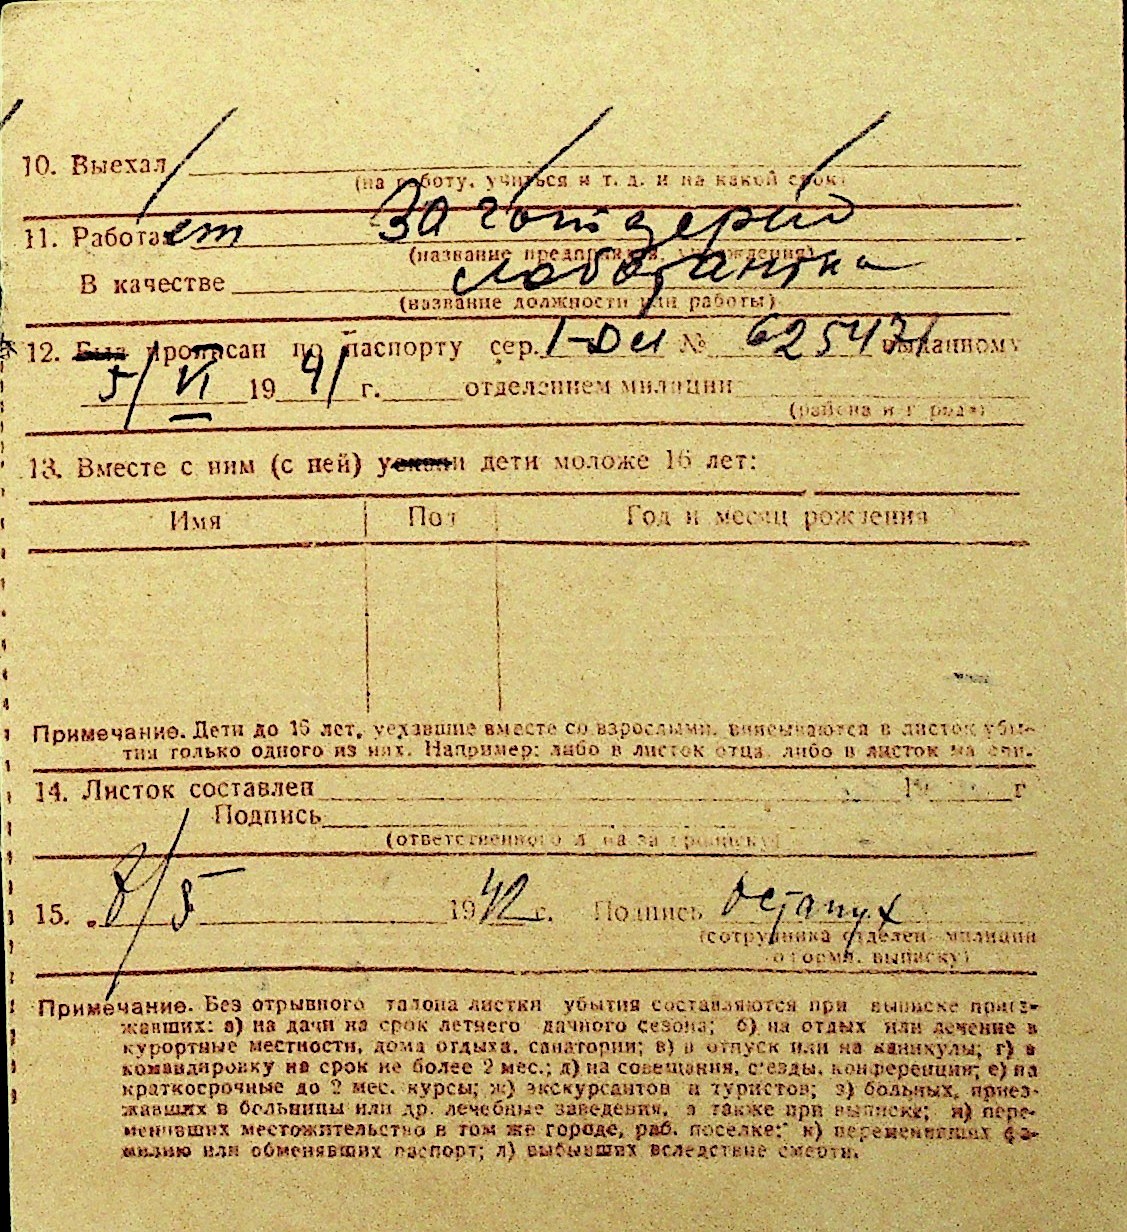 10. Выехал
(на работу, учиться и т. д. и на какой срок)
11. Работает Заготзерно
(название предприятия, учреждения)
В качестве лаборантка
(название должности или работы)
12. Был прописан по паспорту сер. № 625431 выданному
5/VI 1941 г. отделением милиции
(района и города)
13. Вместе с ним (с ней) уехали дети моложе 16 лет:
Имя Пол Год и месяц рождения
Примечание. Дети до 16 лет, уехавшие вместе со взрослыми, вписываются в листок убы-
тия только одного из них. Например: либо в листок отца, либо в листок ма
14. Листок составлен 19 г
Подпись
(ответственного за прописку)
15. „8/5 1942 г. Подпись Остапух
(сотрудника отделен. милиции
оформ. выписку)
Примечание. Без отрывного талона листки убытия составляются при выписке приез-
жавших: а) на дачи на срок летнего дачного сезона; б) на отдых или лечение в
курортные местности, дома отдыха, санатории; в) в отпуск или на каникулы; г) в
командировку на срок не более 2 мес.; д) на совещания, съезды, конференции; е) на
краткосрочные до 2 мес. курсы; ж) экскурсантов и туристов; з) больных, приез-
жавших в больницы или др. лечебные заведения, а также при выписке; и) пере-
менивших местожительство в том же городе, раб. поселке; к) переменивших фа-
милию или обменявших паспорт; л) выбывших вследствие смерти.